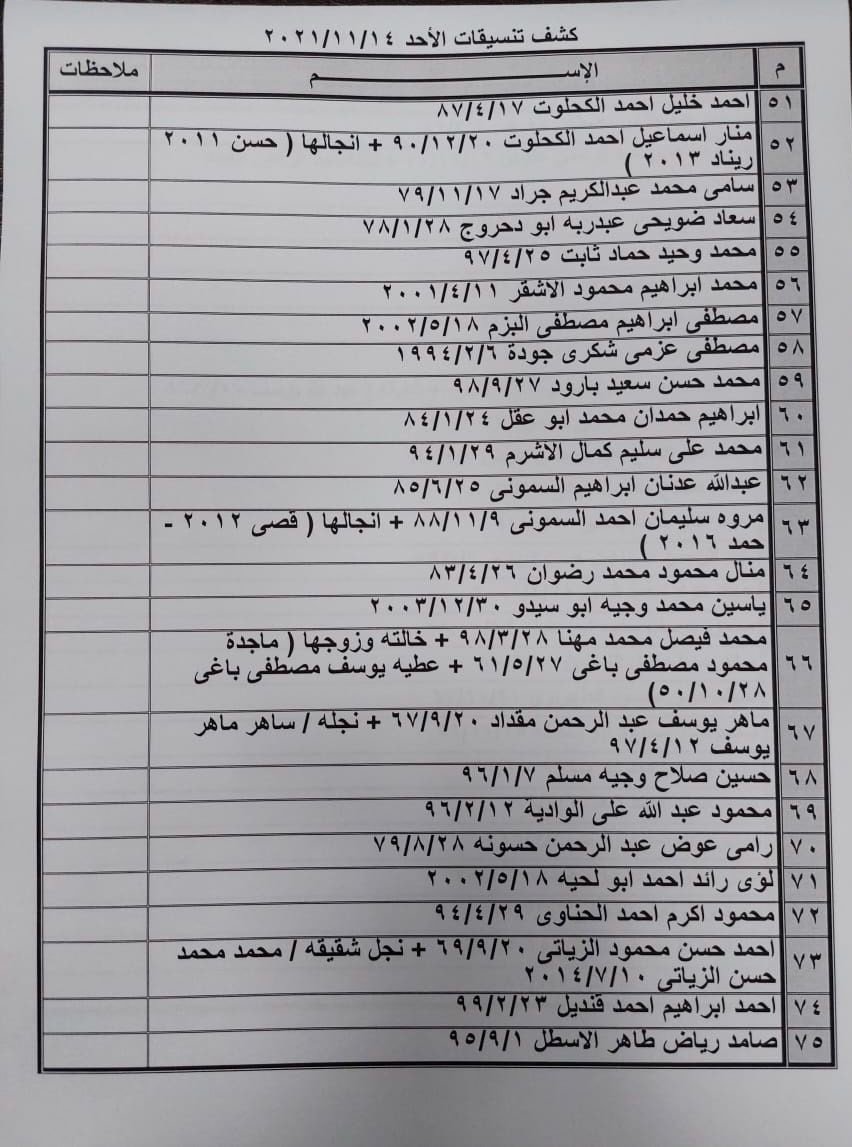 كشف تنسيقات الأحد ٢٠٢١/١١/١٤
م الإســـــــــــــــــــــم ملاحظات
٥١ احمد خليل احمد الكحلوت ٨٧/٤/١٧
٥٢ منار اسماعيل احمد الكحلوت ٩٠/١٢/٢٠ + انجالها ( حسن ٢٠١١
ريناد ٢٠١٣ )
٥٣ سامى محمد عبدالكريم جراد ٧٩/١١/١٧
٥٤ سعاد ضويحى عبدربه ابو دحروج ٧٨/١/٢٨
٥٥ محمد وحيد حماد ثابت ٩٧/٤/٢٥
٥٦ محمد ابراهيم محمود الاشقر ٢٠٠١/٤/١١
٥٧ مصطفى ابراهيم مصطفى البزم ٢٠٠٢/٥/١٨
٥٨ مصطفى عزمى شكرى جودة ١٩٩٤/٢/٦
٥٩ محمد حسن سعيد بارود ٩٨/٩/٢٧
٦٠ ابراهيم حمدان محمد ابو عقل ٨٤/١/٢٤
٦١ محمد على سليم كمال الاشرم ٩٤/١/٢٩
٦٢ عبدالله عدنان ابراهيم السمونى ٨٥/٦/٢٥
٦٣ مروه سليمان احمد السمونى ٨٨/١١/٩ + انجالها ( قصى ٢٠١٢ -
حمد ٢٠١٦ )
٦٤ منال محمود محمد رضوان ٨٣/٤/٢٦
٦٥ ياسين محمد وجيه ابو سيدو ٢٠٠٣/١٢/٣٠
٦٦ محمد فيصل محمد مهنا ٩٨/٣/٢٨ + خالته وزوجها ( ماجدة
محمود مصطفى باغى ٦١/٥/٢٧ + عطيه يوسف مصطفى باغى
٥٠/١٠/٢٨)
٦٧ ماهر يوسف عبد الرحمن مقداد ٦٧/٩/٢٠ + نجله / ساهر ماهر
يوسف ٩٧/٤/١٢
٦٨ حسين صلاح وجيه مسلم ٩٦/١/٧
٦٩ محمود عبد الله على الوادية ٩٦/٢/١٢
٧٠ رامى عوض عبد الرحمن حسونه ٧٩/٨/٢٨
٧١ لؤى رائد احمد ابو لحيه ٢٠٠٢/٥/١٨
٧٢ محمود اكرم احمد الحناوى ٩٤/٤/٢٩
٧٣ احمد حسن محمود الزياتى ٦٩/٩/٢٠ + نجل شقيقه / محمد محمد
حسن الزياتى ٢٠١٤/٧/١٠
٧٤ احمد ابراهيم احمد قنديل ٩٩/٢/٢٣
٧٥ صامد رياض طاهر الاسطل ٩٥/٩/١